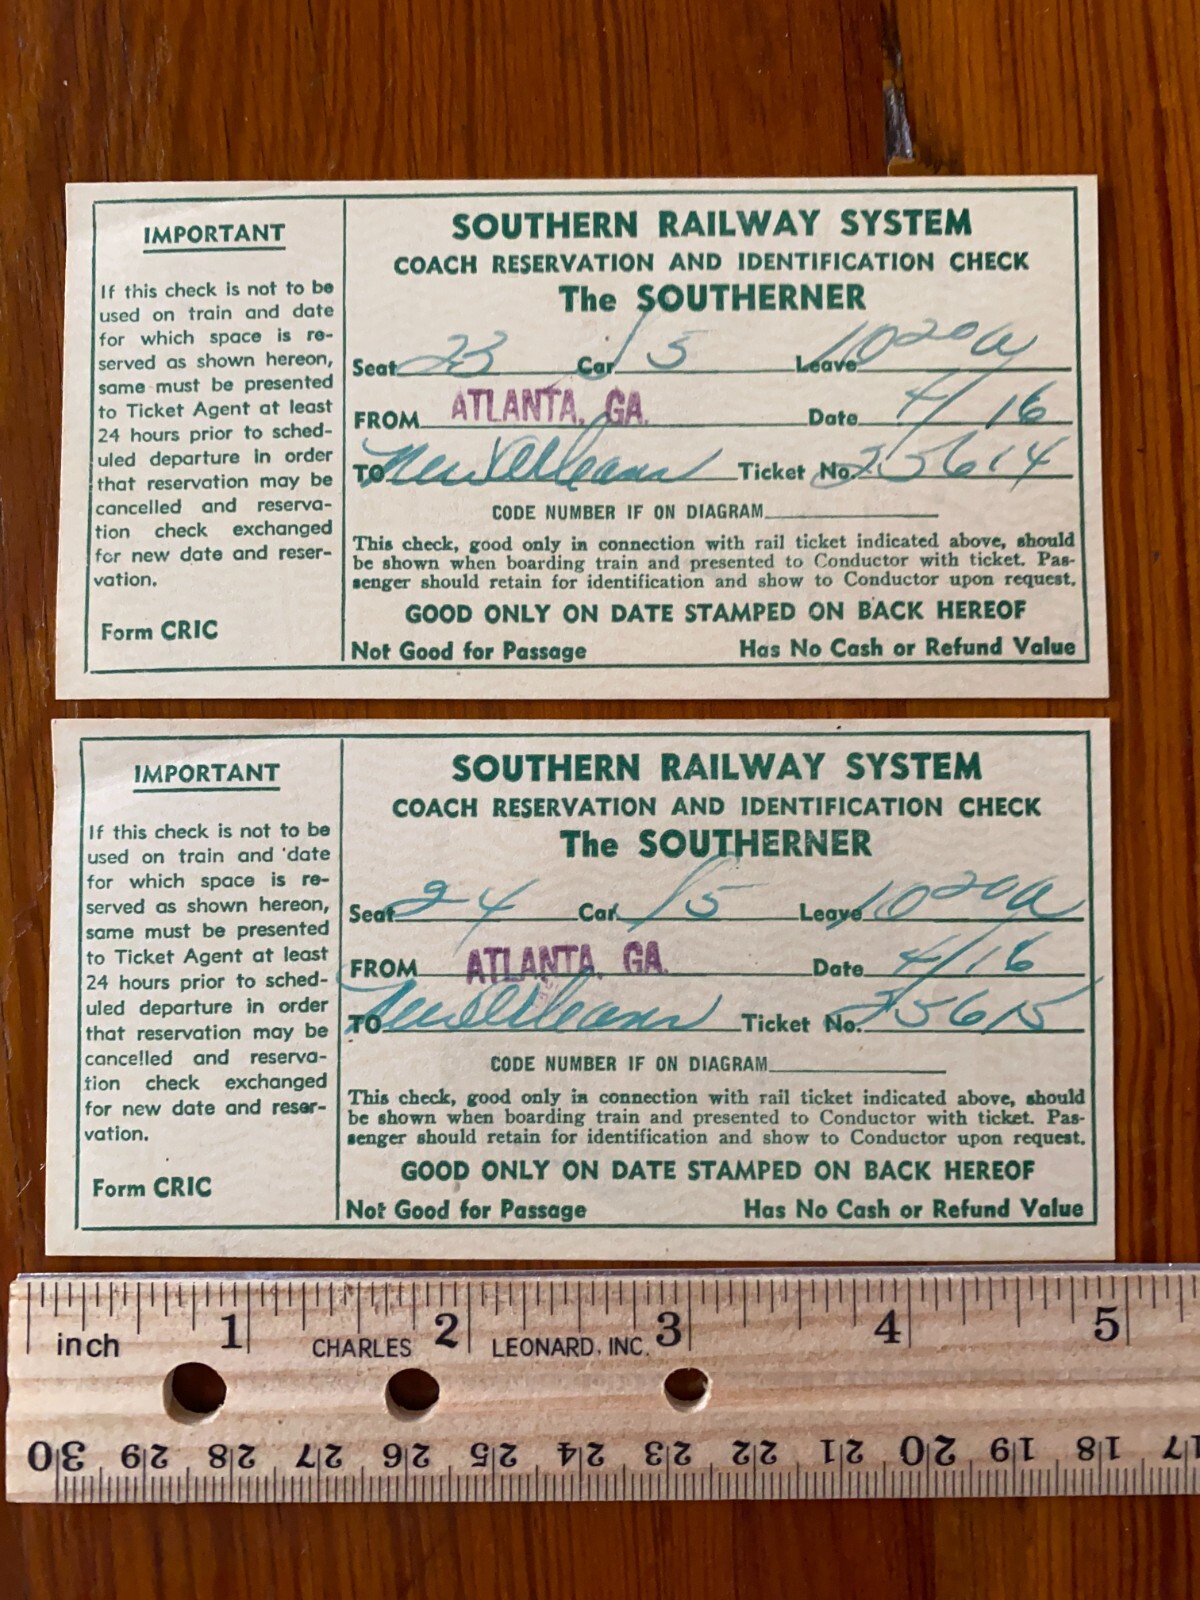 IMPORTANT
If this check is not to be
used on train and date
for which space is re-
served as shown hereon,
same must be presented
to Ticket Agent at least
24 hours prior to sched-
uled departure in order
that reservation may be
cancelled and reserva-
tion check exchanged
for new date and reser-
vation.
Form CRIC
SOUTHERN RAILWAY SYSTEM
COACH RESERVATION AND IDENTIFICATION CHECK
The SOUTHERNER
Seat 23 Car 15 Leave 10 20 a
FROM ATLANTA, GA. Date 4/16
TO New Orleans Ticket No. 25614
CODE NUMBER IF ON DIAGRAM
This check, good only in connection with rail ticket indicated above, should
be shown when boarding train and presented to Conductor with ticket. Pas-
senger should retain for identification and show to Conductor upon request.
GOOD ONLY ON DATE STAMPED ON BACK HEREOF
Not Good for Passage Has No Cash or Refund Value
IMPORTANT
If this check is not to be
used on train and date
for which space is re-
served as shown hereon,
same must be presented
to Ticket Agent at least
24 hours prior to sched-
uled departure in order
that reservation may be
cancelled and reserva-
tion check exchanged
for new date and reser-
vation.
Form CRIC
SOUTHERN RAILWAY SYSTEM
COACH RESERVATION AND IDENTIFICATION CHECK
The SOUTHERNER
Seat 24 Car 15 Leave 10 20 a
FROM ATLANTA, GA. Date 4/16
TO New Orleans Ticket No. 25615
CODE NUMBER IF ON DIAGRAM
This check, good only in connection with rail ticket indicated above, should
be shown when boarding train and presented to Conductor with ticket. Pas-
senger should retain for identification and show to Conductor upon request.
GOOD ONLY ON DATE STAMPED ON BACK HEREOF
Not Good for Passage Has No Cash or Refund Value
inch 1 CHARLES 2 LEONARD, INC. 3 4 5
30 29 28 27 26 25 24 23 22 21 20 19 18 17